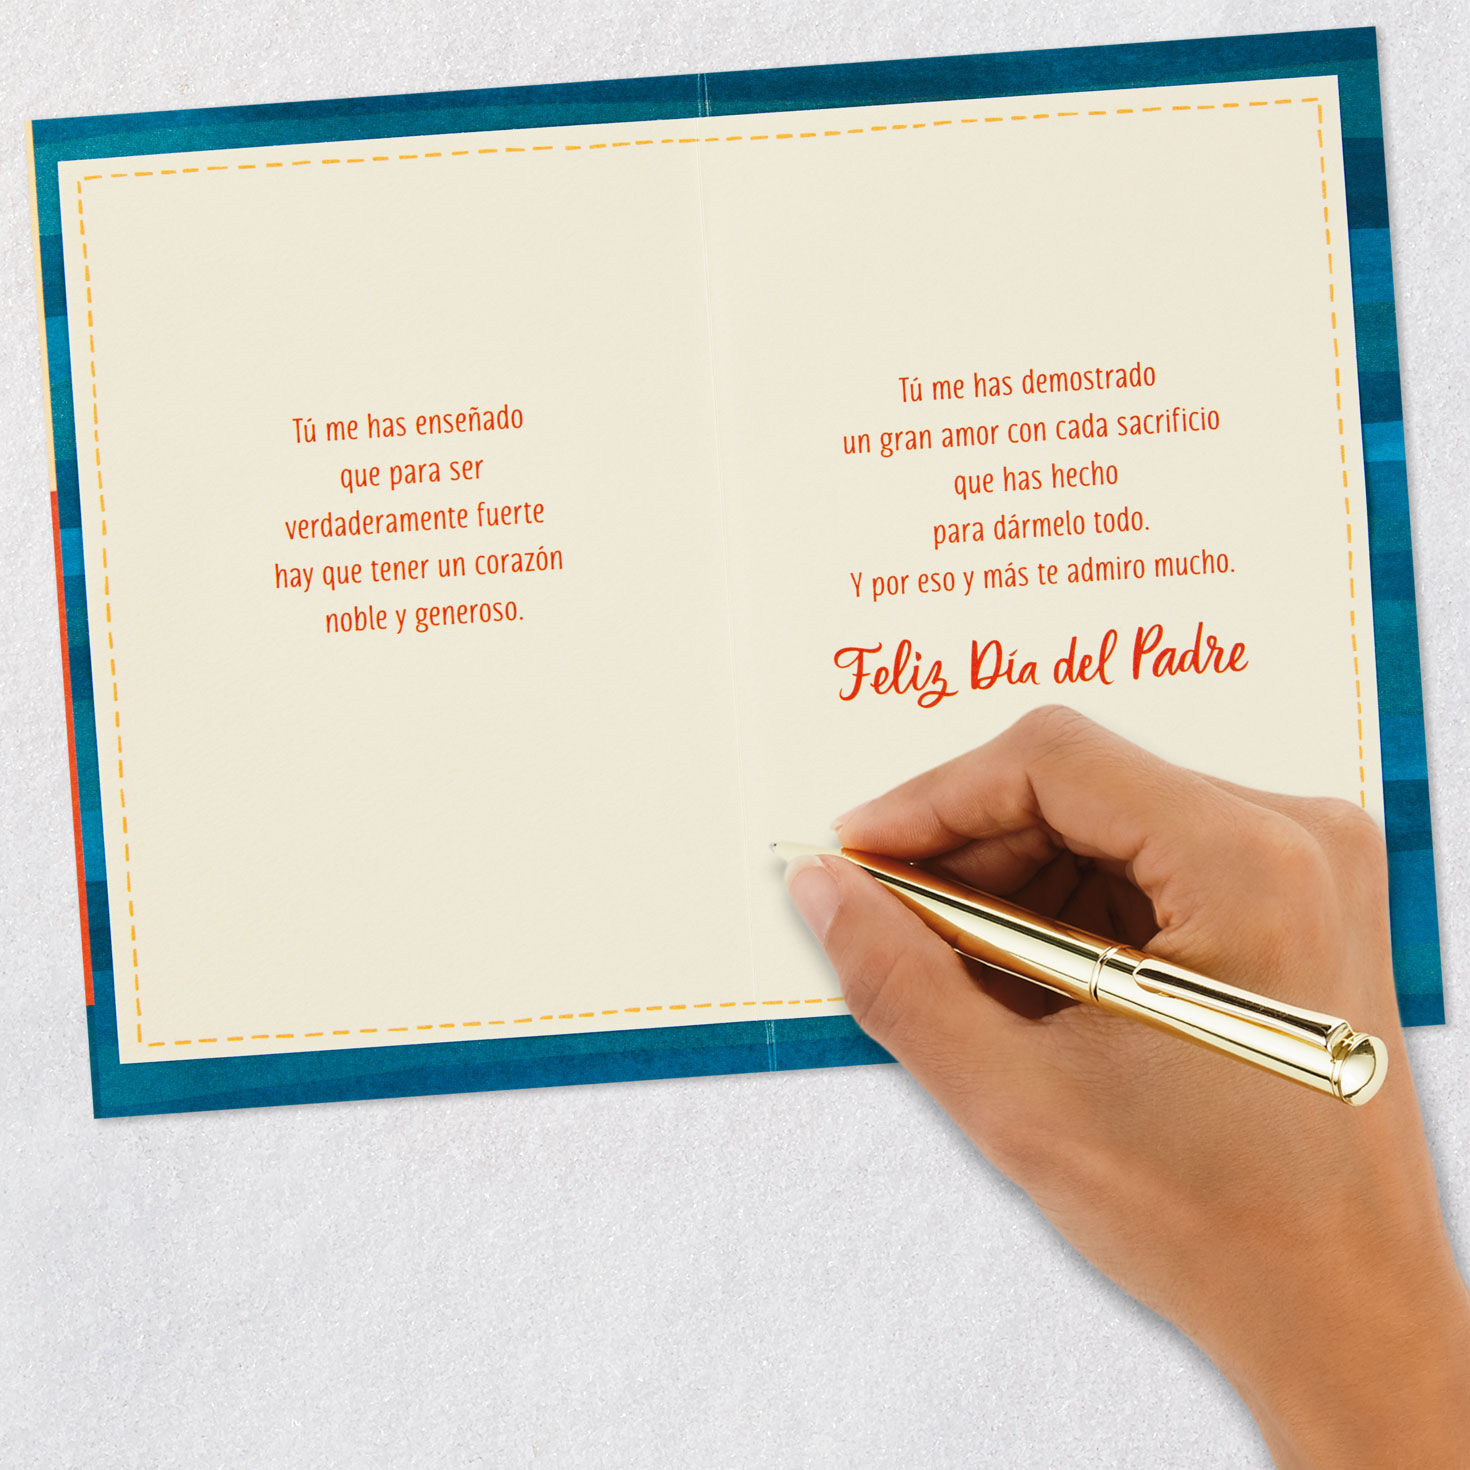 Tú me has enseñado
que para ser
verdaderamente fuerte
hay que tener un corazón
noble y generoso.
Tú me has demostrado
un gran amor con cada sacrificio
que has hecho
para dármelo todo.
Y por eso y más te admiro mucho.
Feliz Día del Padre